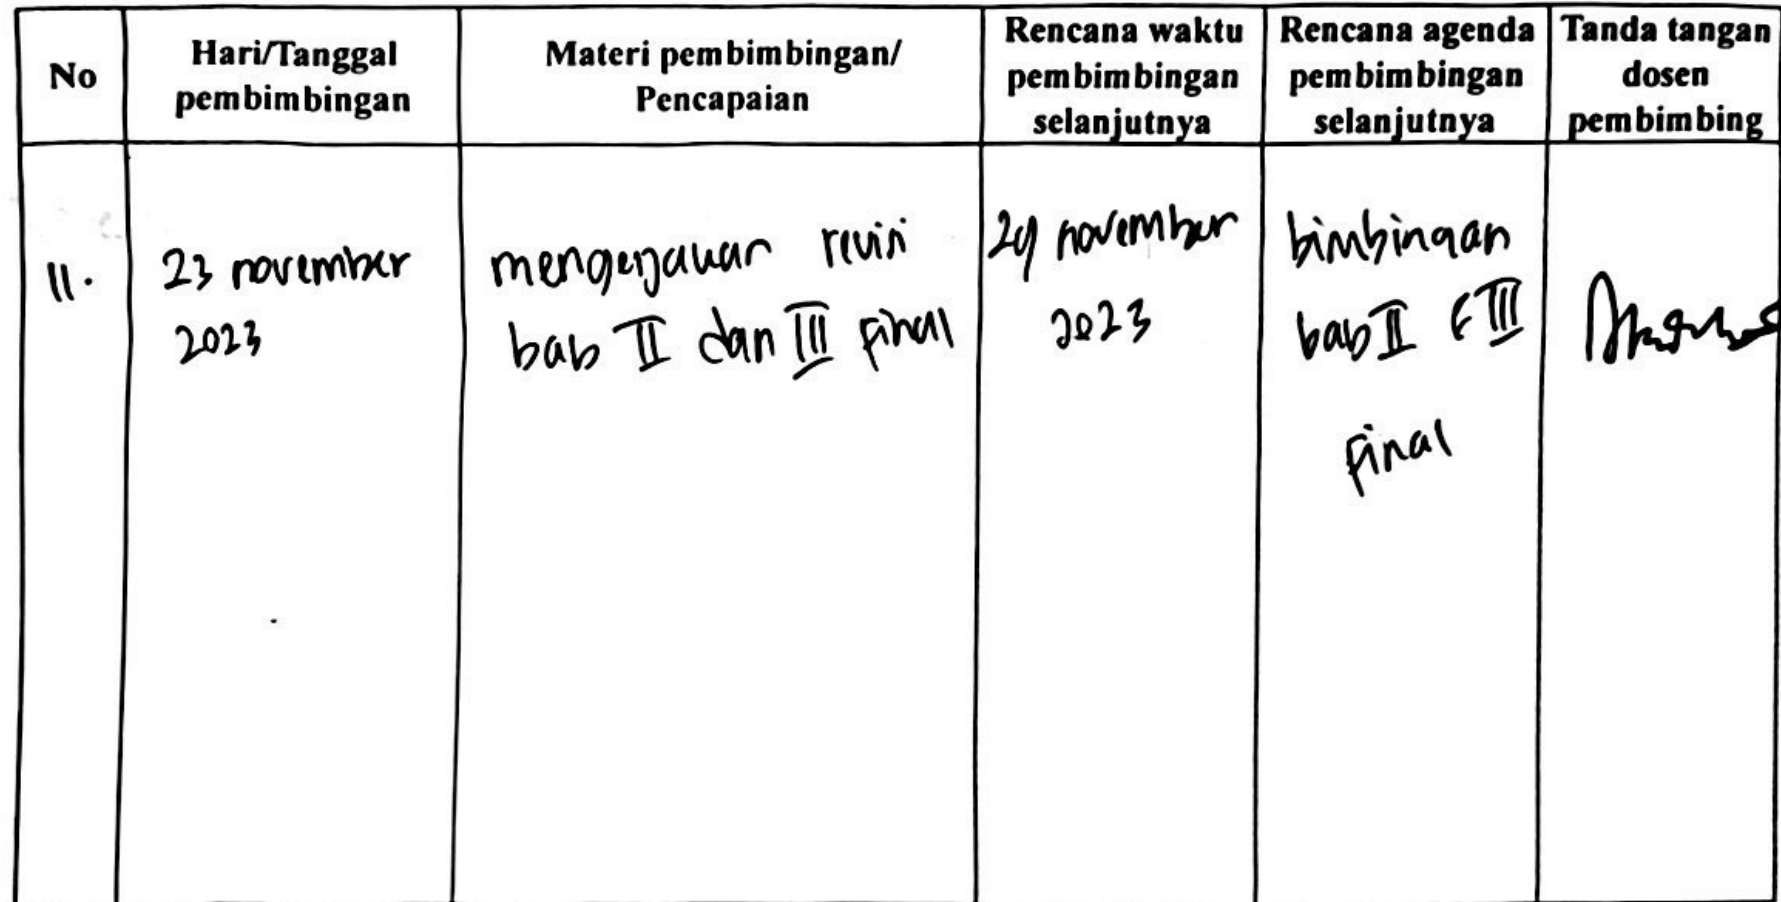 No
Hari/Tanggal
pembimbingan
Materi pembimbingan/
Pencapaian
Rencana waktu
pembimbingan
selanjutnya
Rencana agenda
pembimbingan
selanjutnya
Tanda tangan
dosen
pembimbing
11.
23 november
2023
mengerjakan revisi
bab II dan III final
29 november
2023
bimbingan
bab II & III
final